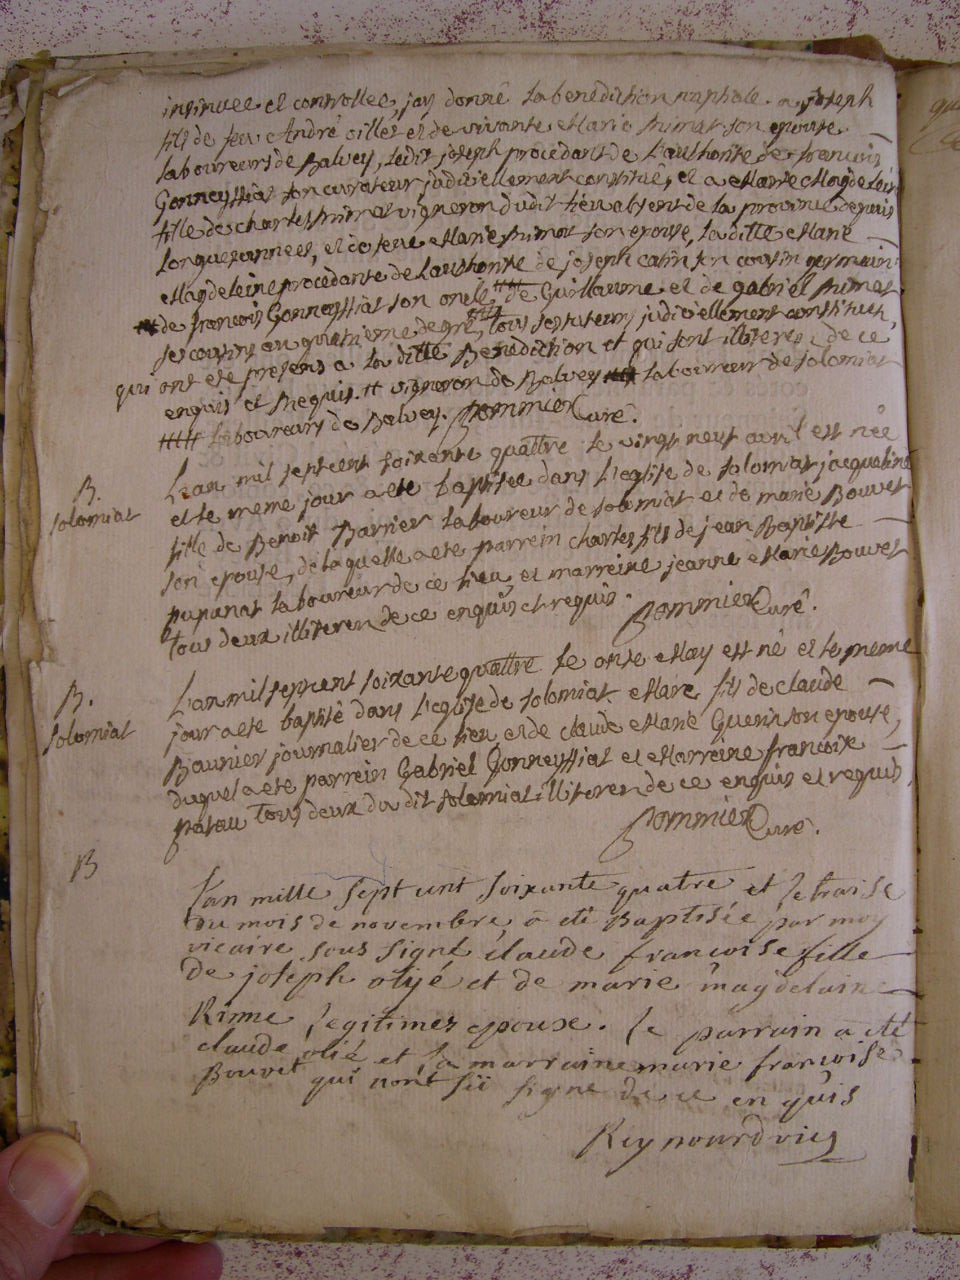 insinuee et controllee, jay donné la benediction nuptiale a joseph
fils de feu André oillet et de vivante Marie Ruinat son epouse
laboureurs de Balvey, ledit joseph procedant de l'authorité de francois
Gonneyssiat son curateur judiciellement constitué, et a Marie Magdeleine
fille de charles vigneron dudit lieu absent de la province depuis
longues années, et de feue Marie son epouse, la ditte Marie
Magdeleine procedante de l'authorité de joseph son cousin germain
de francois Gonneyssiat son oncle ## de Guillaume et de gabriel
ses cousins au quatrieme degré #### tous ses tuteurs judiciellement constitués,
qui ont eté presens a la ditte Benediction et qui sont illiteres de ce
enquis et requis. ## vigneron de Balvey laboureur de solomiat
#### laboureurs de Balvey. Pommier Curé.
B.
solomiat
L'an mil sept cent soixante quattre le vingt neuf avril est née
et le meme jour a eté baptisée dans l'eglise de solomiat jacqueline
fille de Benoit Barrier laboureur de solomiat et de marie Bouvet
son epouse, de laquelle a eté parrein charles fils de jean Baptiste
pupunat laboureur de ce lieu, et marreine jeanne Marie Bouvet
tous deux illiteren de ce enquis et requis. Pommier Curé.
B.
solomiat
L'an mil sept cent soixante quattre le onse May est né et le meme
jour a eté baptisé dans l'eglise de solomiat Marc fils de claude
journalier de ce lieu et de claude Marie Guerin son epouse,
duquel a eté parrein Gabriel Gonneyssiat et Marreine francoise
tous deux du dit solomiat illiteren de ce enquis et requis.
Pommier Curé.
B
L'an mille sept cent soixante quatre et le traise
du mois de novembre, a eté Baptisée par moy
vicaire sous signé claude francoise fille
de joseph olyé et de marie magdelaine
Rinne legitimes epoux. le parrain a eté
claude olié et la marraine marie francoise
Bouvet qui nont sü signé de ce en quis
Reynourd vic